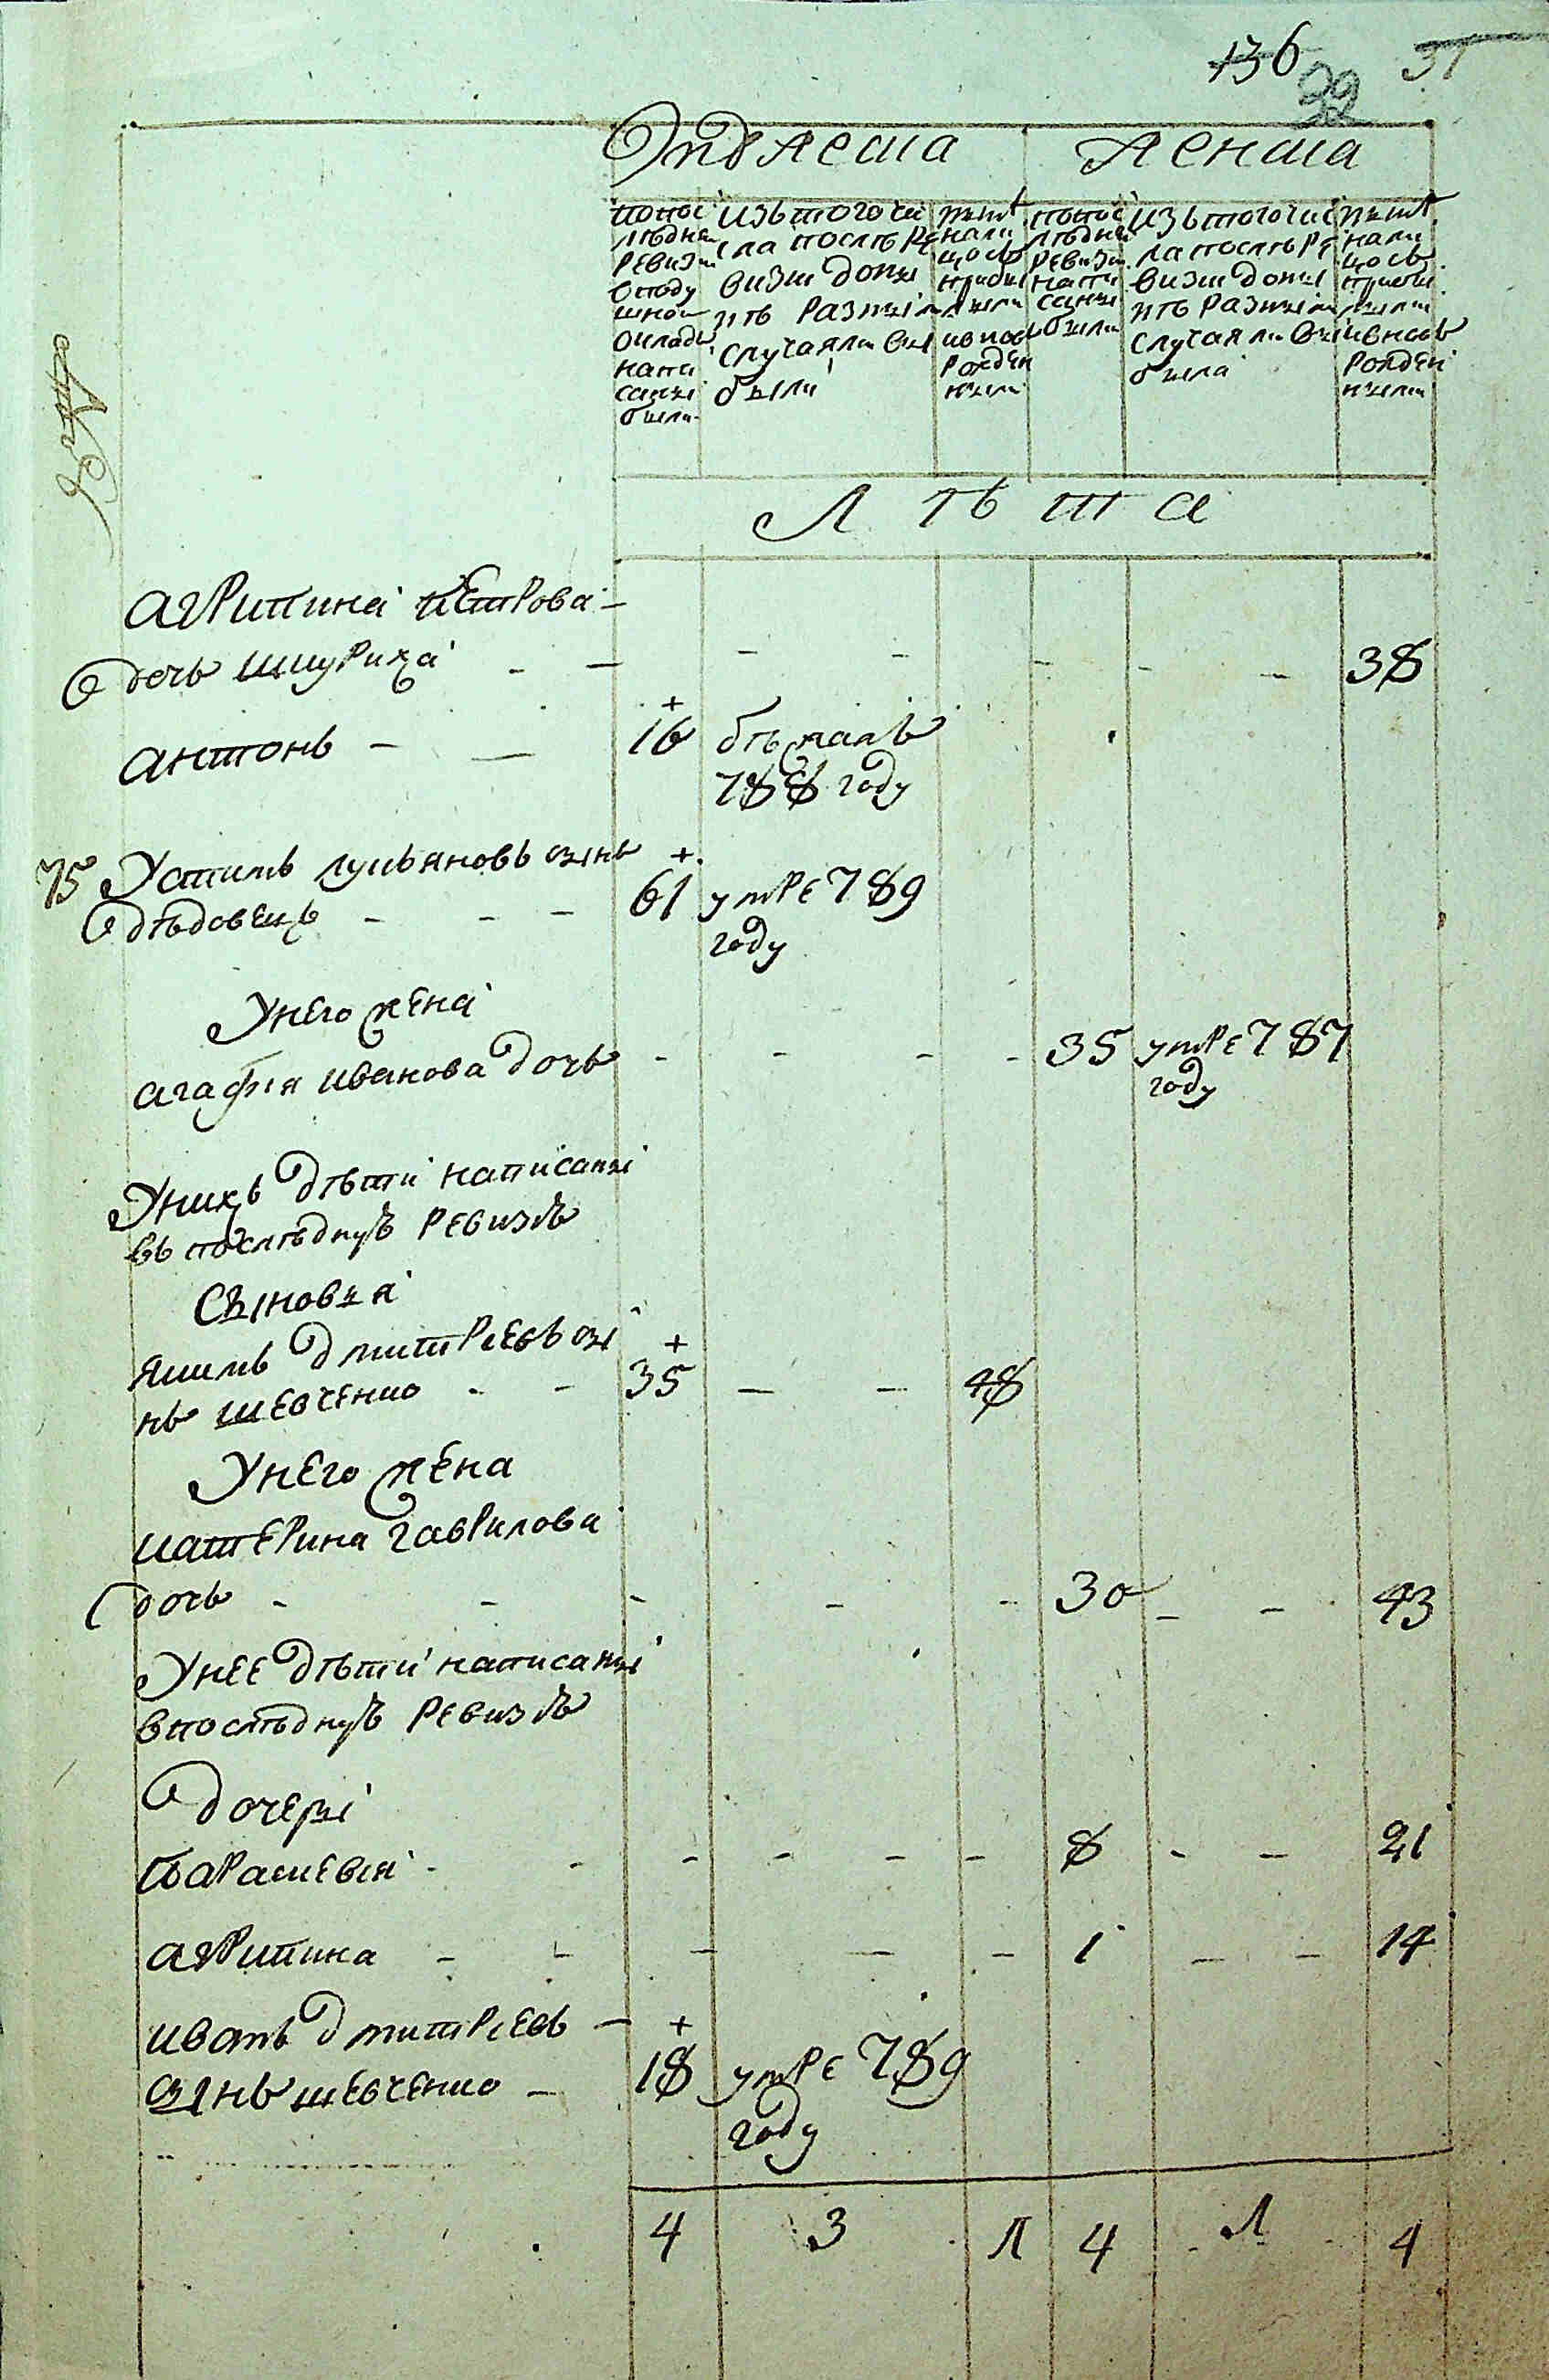 136 31
29
Мужеска Женска
попос
лѣдне
ревизи
в поду
шном
окладѣ
напи
саны
были
изъ того чи
сла послѣ ре
визии до ны
нѣ разными
случаями вы
были
нынѣ
нали
цо съ
прибы
лыми
и вновь
рожден
ными
попос
лѣдне
ревизи
напи
саны
были
изъ того чис
ла послѣ ре
визии до ны
нѣ разными
случаями вы
была
нынѣ
нали
цо съ
прибы
лыми
и вновь
рожден
ными
Лѣта
агрипина петрова
дочь щуриха 38
антонъ 16 бѣжалъ
788 году
75 Устимъ лукьяновъ сынъ
дѣдовецъ 61 умре 789
году
У него жена
агафия иванова дочь 35 умре 787
году
У нихъ дѣти написаны
въ последнуѣ ревизѣ
сыновья
якимъ дмитриевъ сы
нъ шевченко 35 48
У него жена
катерина гаврилова
дочь 30 43
У нее дѣти написаны
в последнуѣ ревизѣ
дочеры
Параскевия 8 21
агрипина 1 14
иванъ дмитриевъ
сынъ шевченко 18 умре 789
году
4 3 Л 4 Л 4